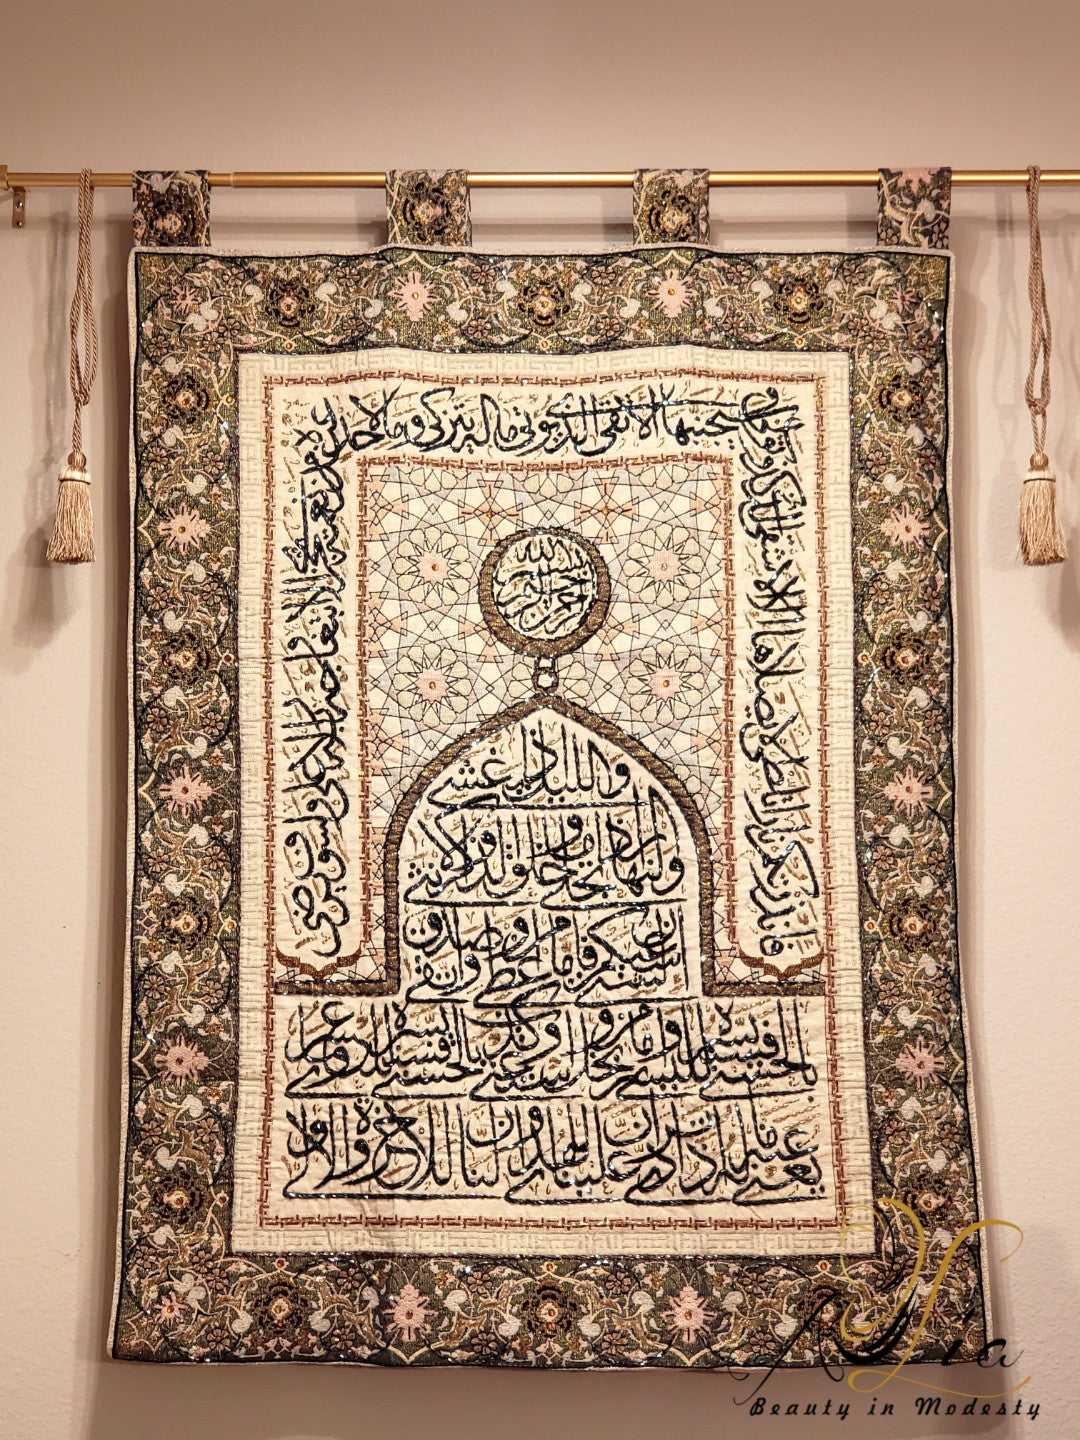 بسم الله الرحمن الرحيم
والليل إذا يغشى
والنهار إذا تجلى وما خلق الذكر والأنثى
إن سعيكم لشتى فأما من أعطى واتقى وصدق
بالحسنى فسنيسره لليسرى وأما من بخل واستغنى وكذب بالحسنى فسنيسره للعسرى وما
يغني عنه ماله إذا تردى إن علينا للهدى وإن لنا للآخرة والأولى
فأنذرتكم نارا تلظى لا يصلاها إلا الأشقى الذي كذب وتولى
وسيجنبها الأتقى الذي يؤتي ماله يتزكى وما لأحد
عنده من نعمة تجزى إلا ابتغاء وجه ربه الأعلى ولسوف يرضى
Beauty in Modesty